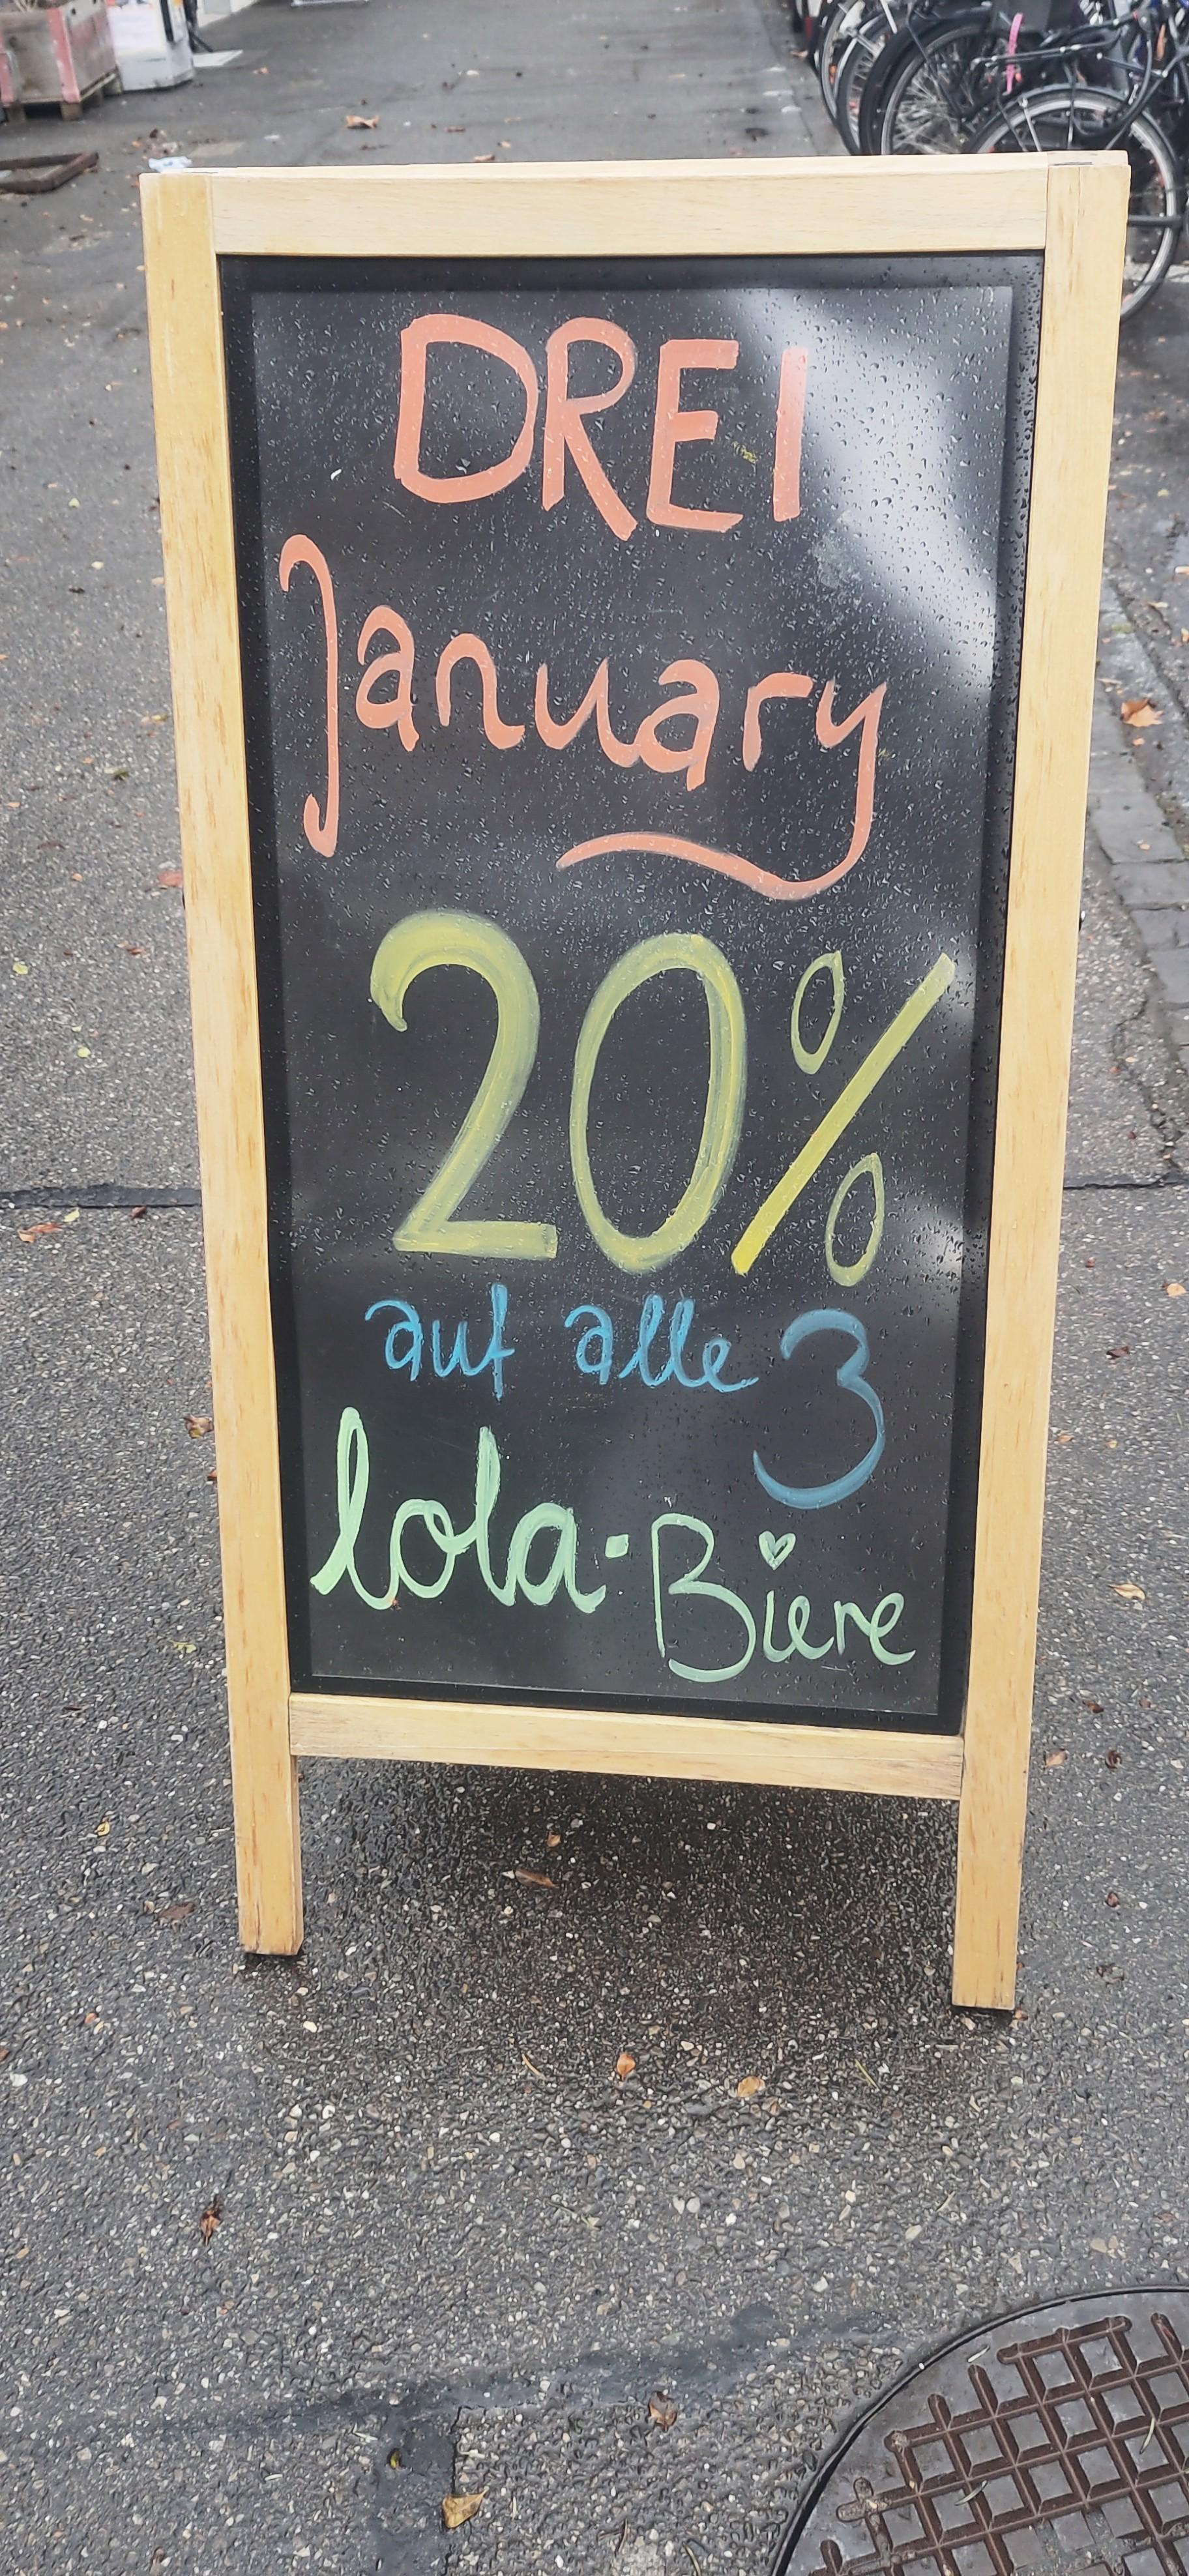 DREI
January
20%
auf alle 3
lola·Biere